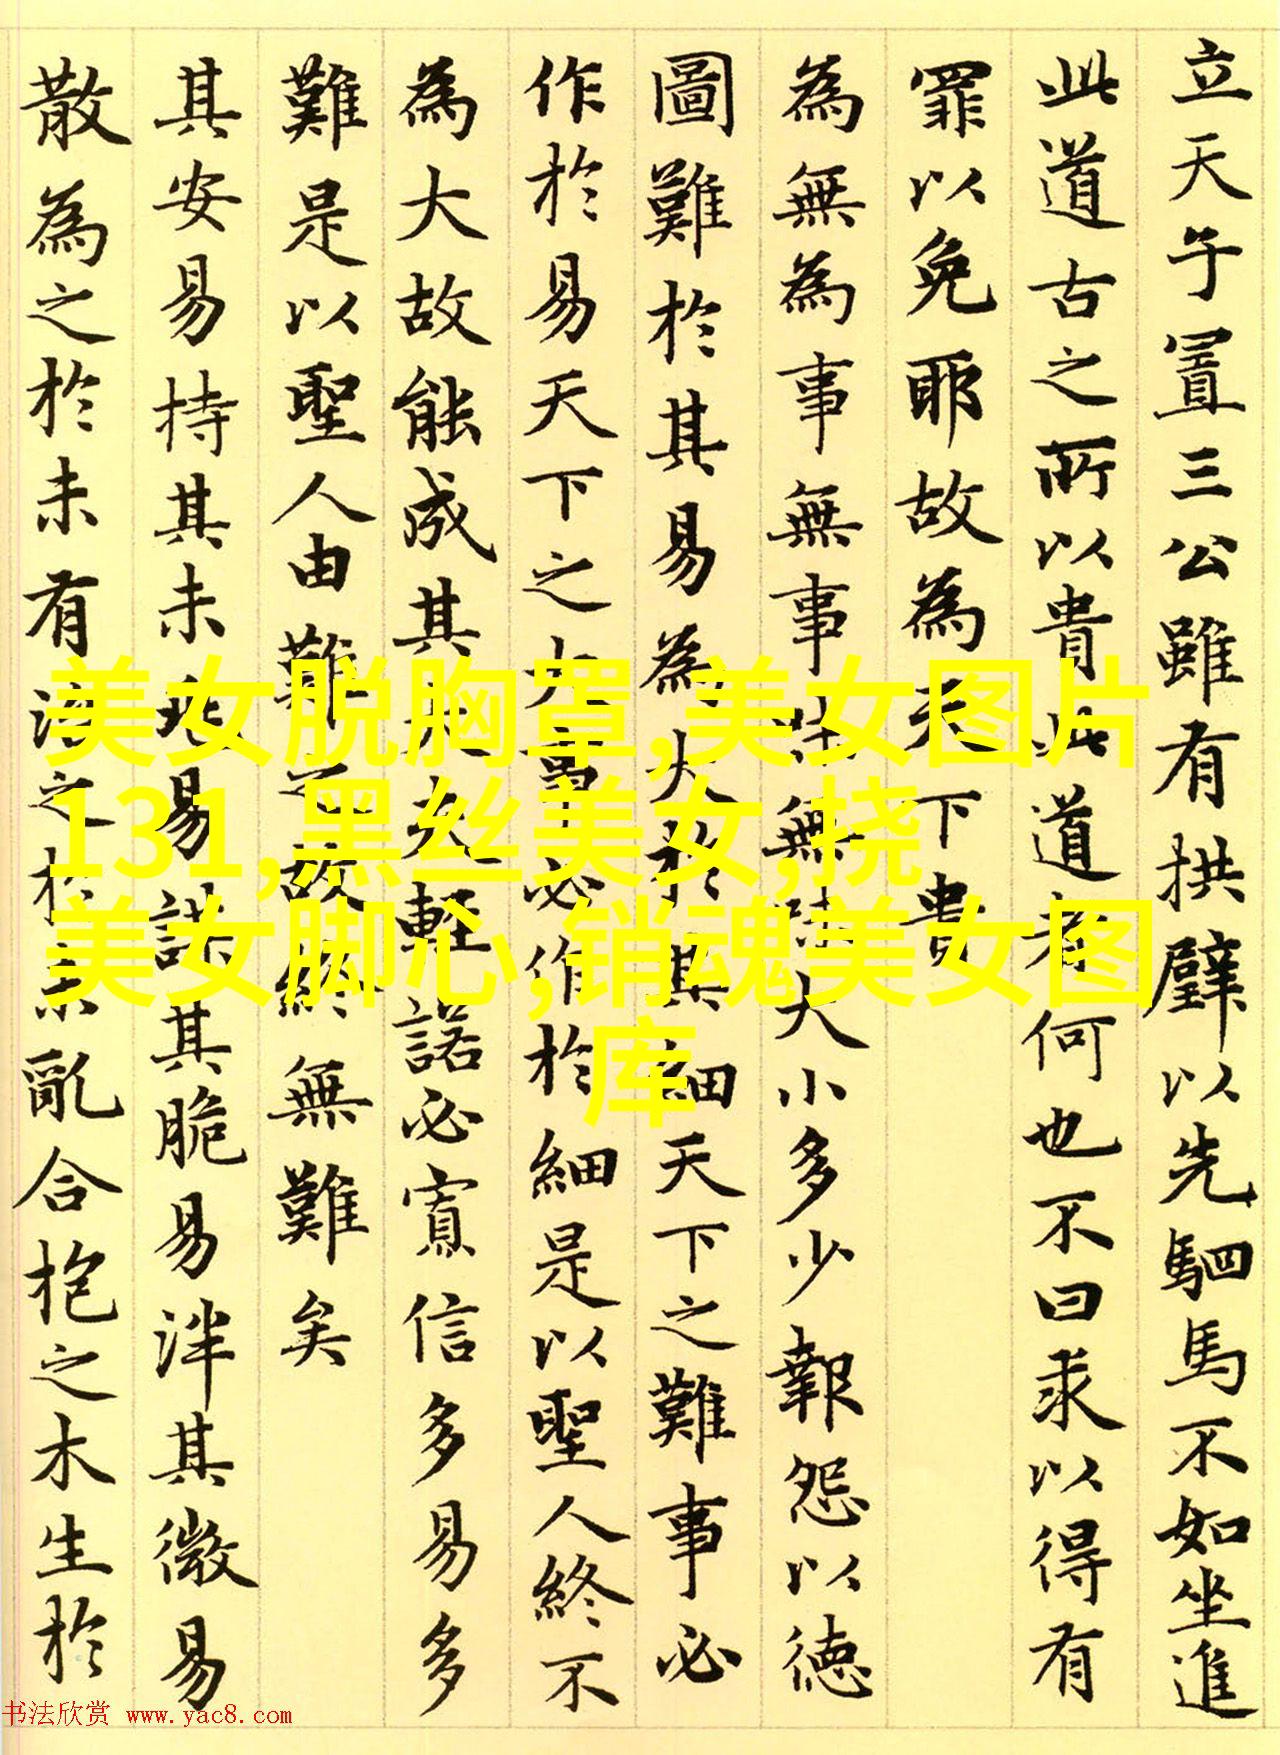 立天子置三公雖有拱璧以先駟馬不如坐進
此道古之所以貴此道者何也不曰求以得有
罪以免耶故為天下貴
為無為事無事味無味大小多少報怨以德
圖難於其易為大於其細天下之難事必
作於易天下之大事必作於細是以聖人終不
為大故能成其大夫輕諾必寡信多易多
難是以聖人由難之故終無難矣
其安易持其未兆易謀其脆易泮其微易
散為之於未有治之於未亂合抱之木生於
美女脱胸罩,美女图片
131,黑丝美女,挠
美女脚心,销魂美女图
库
书法欣赏 www.yac8.com